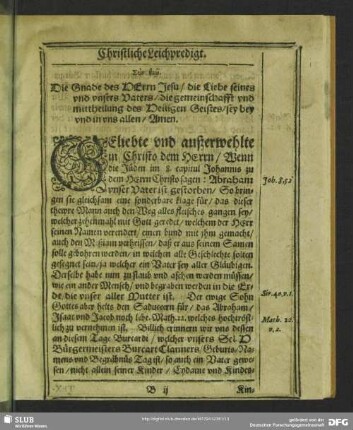 Christliche Leichpredigt.
Die Gnade des HErrn Jesu / die Liebe seines
vnd vnsers Vaters / die gemeinschafft vnd
mittheilung des Heiligen Geistes / sey bey
vnd in vns allen / Amen.
GEliebte vnd außerwehlte
in Christo dem Herrn / Wenn
die Jüden im 8 capitul Johannis zu
dem Herrn Christo sagen: Abraham
vnser Vater ist gestorben / So brin-
gen sie gleichsam eine sonderbare klage für / das dieser
thewre Mann auch den Weg alles fleisches gangen sey /
welcher zehenmahl mit Gott geredet / welchem der HErr
seinen Namen verendert / einen bund mit ihm gemacht /
auch den Messiam verheissen / daß er aus seinem Samen
solle gebohren werden / in welchem alle Geschlechte solten
gesegnet sein / ja welcher ein Vater sey aller Gläubigen.
Derselbe habe nun zu staub vnd aschen werden müssen /
wie ein ander Mensch / vnd begraben werden in die Er-
de / die vnser aller Mutter ist. Der ewige Sohn
Gottes aber helt den Saduceern für / das Abraham /
Isaac vnd Jacob noch lebe. Math. 22. welches hochtröst-
lich zu vernehmen ist. Billich erinnern wir vns dessen
an diesem Tage Burcardi / welcher vnsers Sel. H
Bürgermeisters Burcart Clamers, Geburts / Na-
mens vnd Begräbnüs Tag ist / so auch ein Vater gewe-
sen / nicht allein seiner Kinder / Eydame vnd Kindes-
B ij
Kin-
Joh. 8.
Sir. 40. v. 1.
Math. 22.
SLUB
Wir führen Wissen.
gefördert von der
DFG
Deutsche Forschungsgemeinschaft